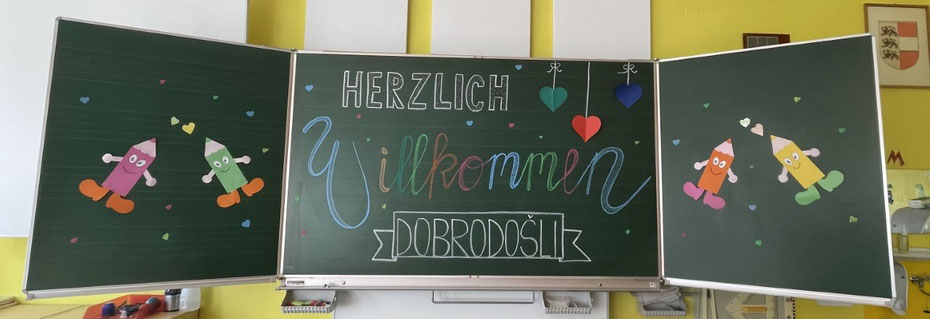 HERZLICH
Willkommen
DOBRODOŠLI